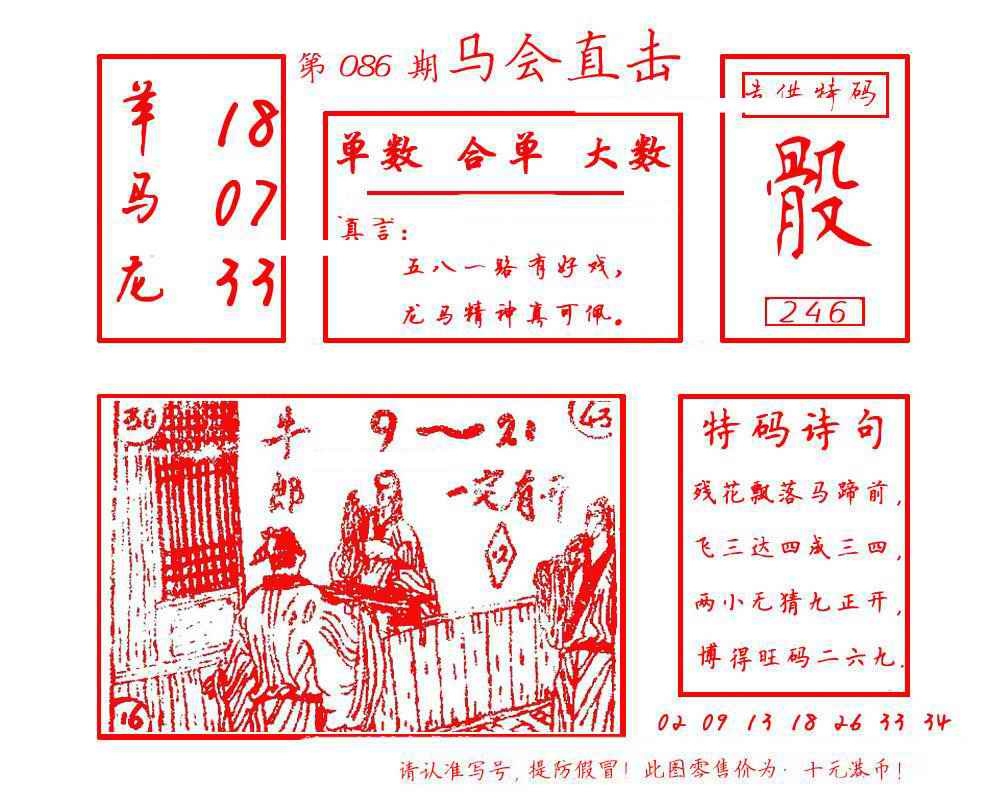 第 086 期 马会直击
羊 18
马 07
龙 33
单数 合单 大数
真言:
五八一路有好戏,
龙马精神真可佩。
供特码
骰
246
30
牛郎
9~21
一定有
43
16
特码诗句
残花飘落马蹄前,
飞三达四成三四,
两小无猜九正开,
博得旺码二六九.
02 09 13 18 26 33 34
请认准写号,提防假冒!此图零售价为·十元港币!